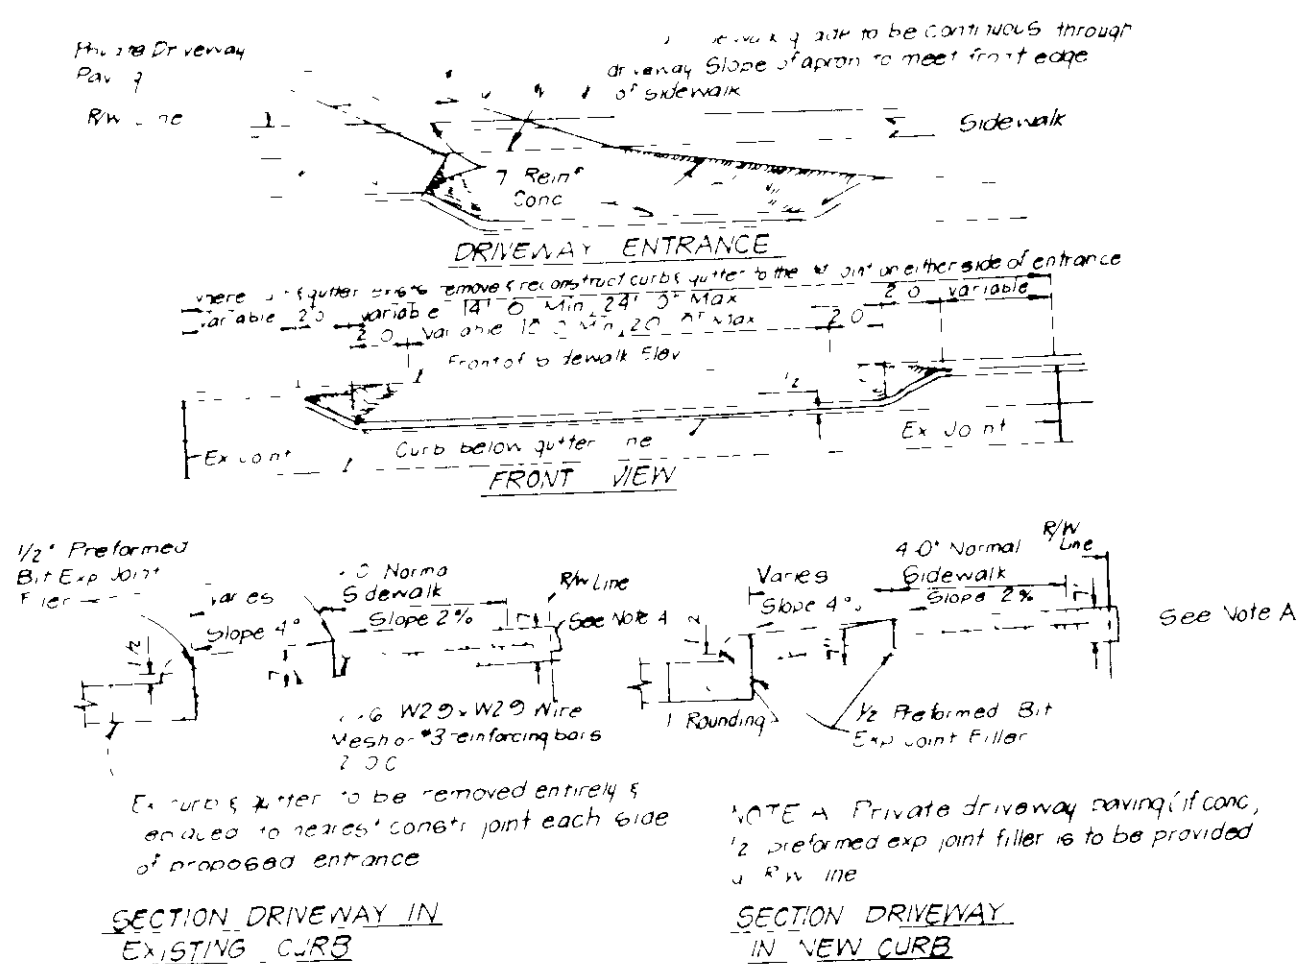 Driveway
R/W
to be continuous through
Slope of apron to meet front edge
of sidewalk
Sidewalk
7 Reinf
Conc
DRIVEWAY ENTRANCE
remove & reconstruct curb & gutter to the on either side of entrance
variable 2 0 variable 14' 0 Min, 24' 0" Max 2 0 variable
2 0 Variable Min, 20 Max 2 0
Front of Sidewalk Elev
1/2
Ex Joint Curb below gutter Ex Joint
FRONT VIEW
1/2" Preformed
Bit Exp Joint
Varies
Sidewalk
Slope 4° Slope 2%
R/W Line
See Note A
1/2
W2 9 x W2 9 Wire
Mesh or #3 reinforcing bars
Ex curb & gutter to be removed entirely &
to nearest constr joint each side
of proposed entrance
SECTION DRIVEWAY IN
EXISTING CURB
Varies
4-0" Normal
Sidewalk
R/W
Line
Slope 4° Slope 2%
See Note A
1 Rounding
1/2 Preformed Bit
Exp Joint Filler
NOTE A Private driveway paving (if conc,
1/2 preformed exp joint filler is to be provided
R/W line
SECTION DRIVEWAY
IN NEW CURB